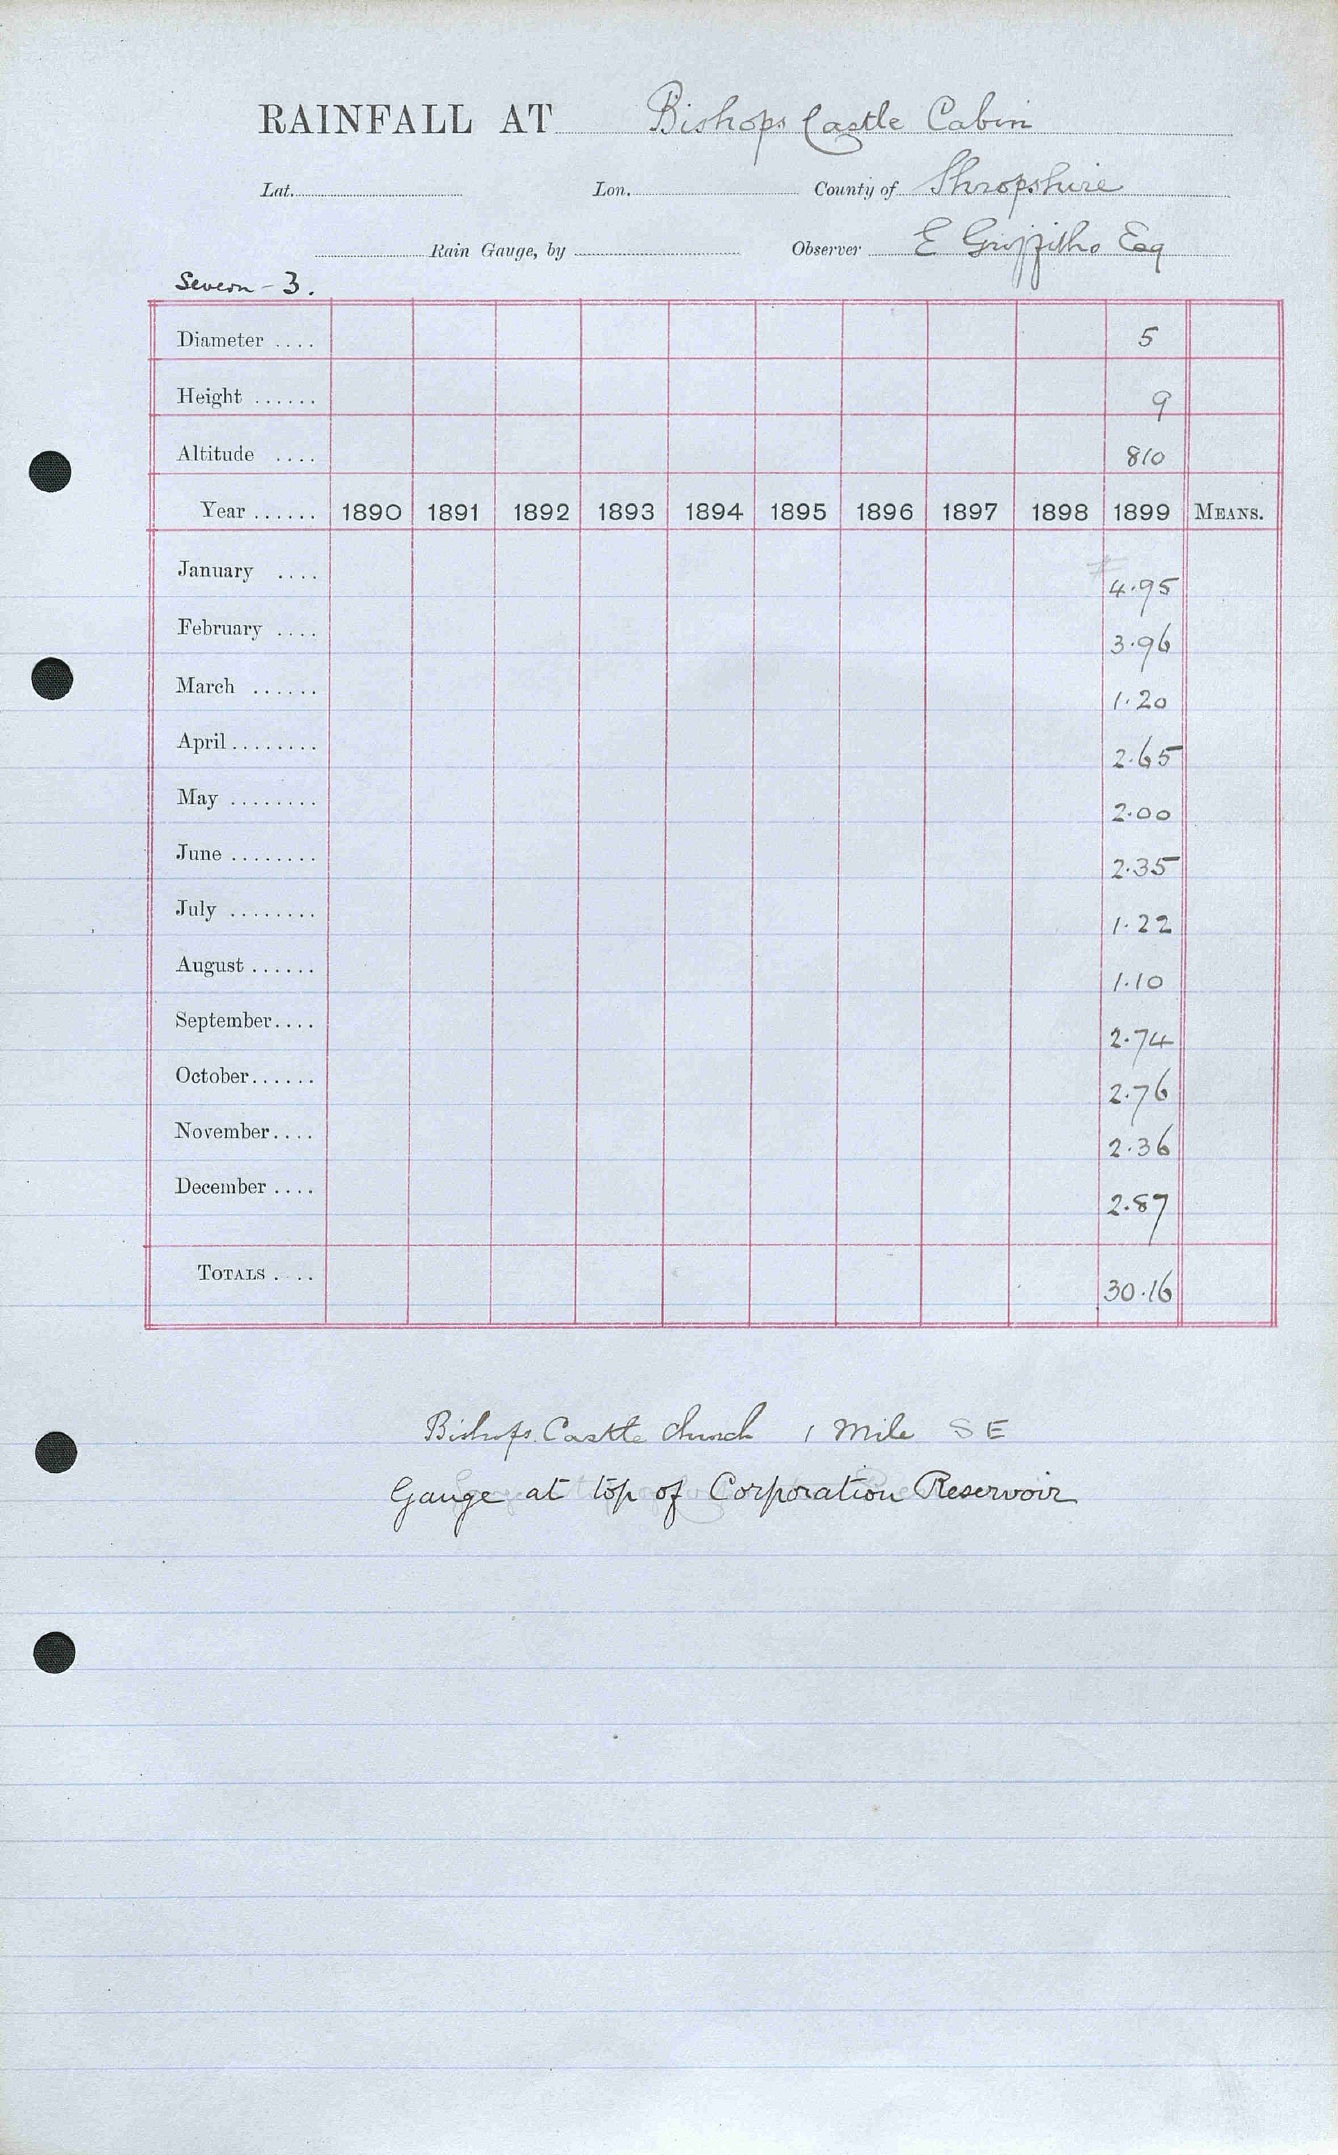 RAINFALL AT Bishops Castle Cabin
Lat. Lon. County of Shropshire
Rain Gauge, by Observer E Griffiths Esq
Severn - 3.
Diameter .... 5
Height ...... 9
Altitude .... 810
Year ...... 1890 1891 1892 1893 1894 1895 1896 1897 1898 1899 MEANS.
January .... 4.95
February .... 3.96
March ...... 1.20
April ........ 2.65
May ........ 2.00
June ........ 2.35
July ........ 1.22
August ...... 1.10
September.... 2.74
October...... 2.76
November.... 2.36
December .... 2.87
TOTALS .... 30.16
Bishops Castle Church 1 Mile SE
Gauge at top of Corporation Reservoir